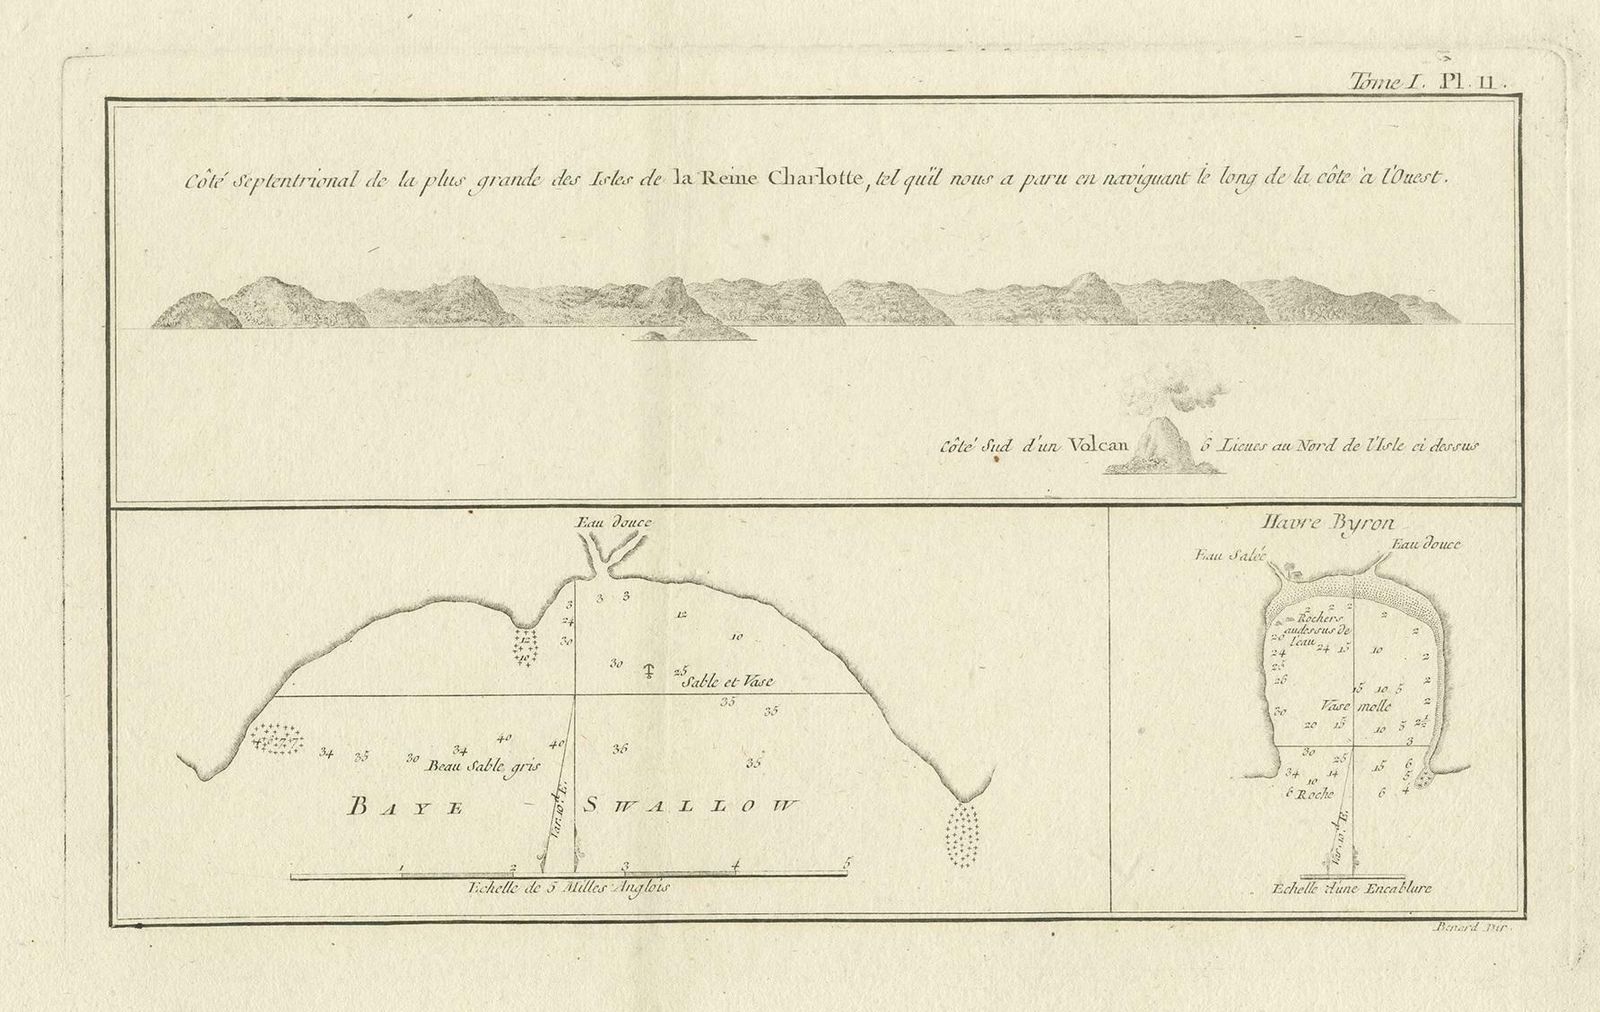 Tome I. Pl. II.
Côté Septentrional de la plus grande des Isles de la Reine Charlotte, tel qu'il nous a paru en naviguant le long de la côte à l'Ouest.
Côté Sud d'un Volcan 6 Lieues au Nord de l'Isle ci dessus
Eau douce
3 3 3
24
12
30
10
12
10
30 25
Sable et Vase
35 35
34 35 30 34 40 40 36 35
Beau Sable gris
BAYE SWALLOW
Var. 10.d E.
1 2 3 4 5
Echelle de 5 Milles Anglois
Havre Byron
Eau Salée
Eau douce
2 2 2 2
Rochers
audessus de
l'eau
2
24 15 10
24
25
2
26
15 10 5 2
Vase molle
2
30
20 15 10 5 2½
3
30
25 15 6
34 14 5
10
6 Roche 6 4
Var. 10.d E.
Echelle d'une Encablure
Benard Dir.